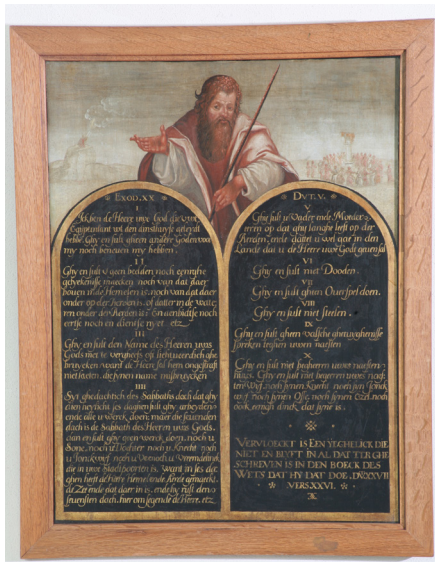 EXOD. XX
I
Ick ben de Heere uwe God die u wt
Egiptenlant wt den diensthuyse geleyt
hebbe. Ghy en sult gheen ander Goden voor
my noch beneven my hebben.
II
Ghy en sult u geen beelden noch eenighe
gelyckenisse maecken noch van dat daer
boven in de Hemel en is noch van dat daer
onder op der Aerden is of dat ter in de wate
ren onder der Aerden is: En aenbidtse noch
eertse noch en dientse nyet etz
III
Ghy en sult den Name des Heeren uwes
Gods niet te vergheefs oft lichtveerdich ghe
bruycken want de Heer sal hem ongestraft
niet laeten die synen name misbruycken
IIII
Syt ghedachtich des Sabbaths dach dat ghy
dien heylicht ses daghen sult ghy arbeyden
ende alle u werck doen: maer de sevenden
dach is de Sabbath des Heeren uws Gods.
dan en sult ghy geen werck doen noch u
Sone noch u Dochter noch u Knecht noch
u Jonckwyf noch u Vee noch u Vreemdelinck
die in uwe Stadtpoorten is. want in ses da
ghen heeft de Heere Hemel ende Aerde gemaeckt
de Zee ende dat daer in is. ende hy rust den
sevensten dach. hier om segende de Heere. etz
DVT. V.
V
Ghy sult u Vader ende Moeder
eeren op dat ghy langhe leeft op der
Aerden, ende dattet u wel gae in den
Lande dat u de Heere uwe Godt geven sal
VI
Ghy en sult niet Dooden.
VII
Ghy en sult ghen Overspel doen.
VIII
Ghy en sult niet stelen.
IX
Ghy en sult gheen valsche ghetuychenisse
spreken teghen uwen naesten
X
Ghy en sult niet begheren uwes naesten
Huys. Ghy en sult niet begeeren uwes naes
ten Wyf. noch synen Knecht noch syn Jonck
wyf noch synen Osse, noch synen Ezel. noch
ook eenich dinck, dat syne is.
VERVLOECKT IS EEN YEGHELICK DIE
NIET EN BLYFT IN AL DAT TER GHE
SCHREVEN IS IN DEN BOECK DES
WETS DAT HY DAT DOE. DVT. XXVII
VERS. XXVI.